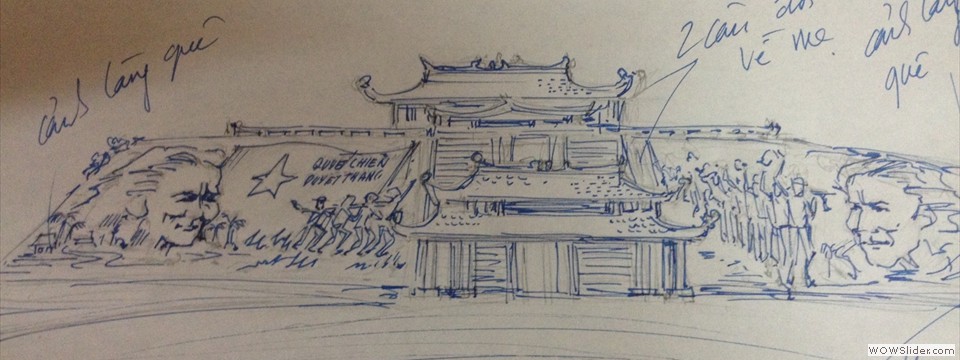 cảnh làng quê
2 câu đối
về mẹ.
cảnh làng
quê
QUYẾT CHIẾN
QUYẾT THẮNG
WOWSlider.com